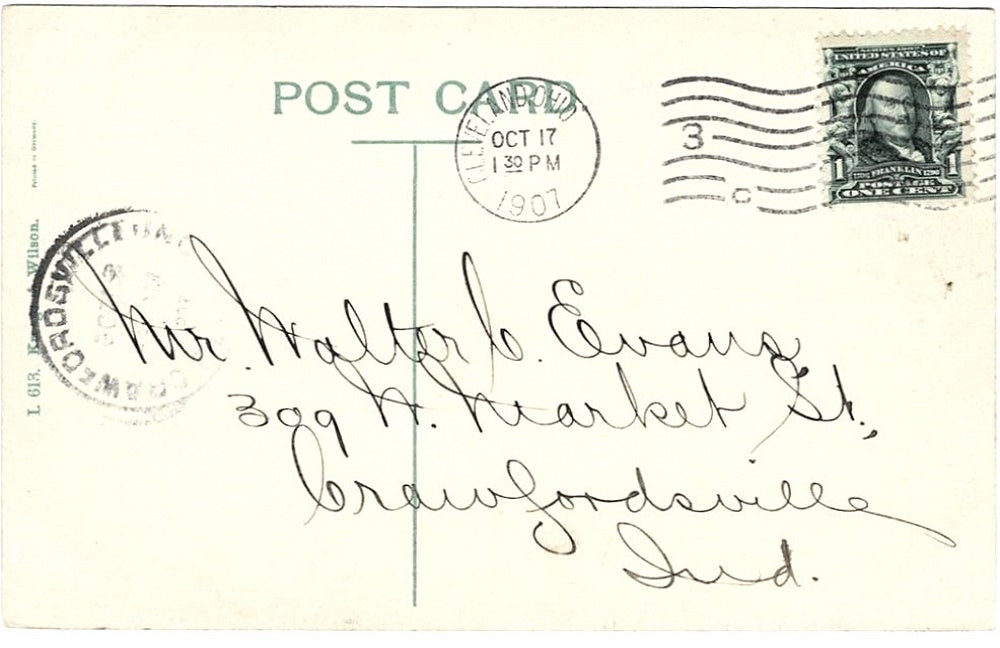 POST CARD
CLEVELAND, OHIO
OCT 17
1 30 PM
1907
3
C
SERIES 1902
UNITED STATES OF
AMERICA
1 1
1706 FRANKLIN 1790
POSTAGE
ONE CENT
Printed in Germany.
I. 613. Wilson.
CRAWFORDSVILLE IND.
Mr. Walter C. Evans,
309 N. Market St.,
Crawfordsville
Ind.